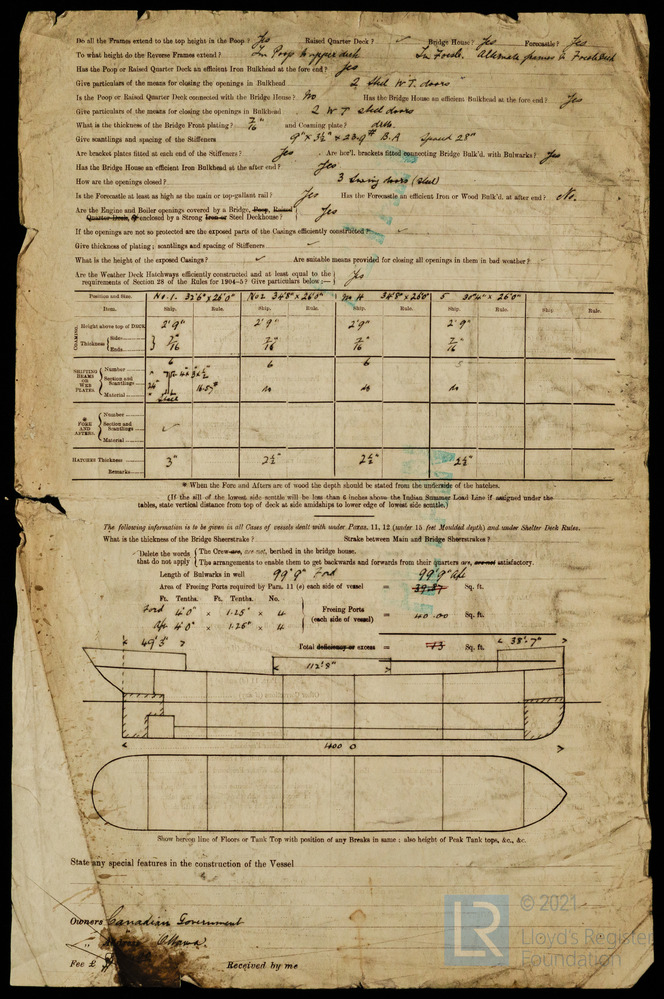 Do all the Frames extend to the top height in the Poop? Yes Raised Quarter Deck? ✓ Bridge House? Yes Forecastle? Yes
To what height do the Reverse Frames extend? In Poop to upper deck In Foc'sle. Alternate frames to Foc'sle Deck
Has the Poop or Raised Quarter Deck an efficient Iron Bulkhead at the fore end? Yes
Give particulars of the means for closing the openings in Bulkhead 2 Steel W.T. doors
Is the Poop or Raised Quarter Deck connected with the Bridge House? No Has the Bridge House an efficient Bulkhead at the fore end? Yes
Give particulars of the means for closing the openings in Bulkhead 2 W T steel doors
What is the thickness of the Bridge Front plating? 7/16" and Coaming plate? ditto
Give scantlings and spacing of the Stiffeners 9" x 3½" x 23.9# B.A Spaced 28"
Are bracket plates fitted at each end of the Stiffeners? Yes Are hor'l. brackets fitted connecting Bridge Bulk'd. with Bulwarks? Yes
Has the Bridge House an efficient Iron Bulkhead at the after end? Yes
How are the openings closed? 3 Swing doors (steel)
Is the Forecastle at least as high as the main or top-gallant rail? Yes Has the Forecastle an efficient Iron or Wood Bulk'd. at after end? No.
Are the Engine and Boiler openings covered by a Bridge, Poop, Raised
Quarter Deck, or enclosed by a Strong Iron or Steel Deckhouse? } Yes
If the openings are not so protected are the exposed parts of the Casings efficiently constructed? ✓
Give thickness of plating; scantlings and spacing of Stiffeners ✓
What is the height of the exposed Casings? ✓ Are suitable means provided for closing all openings in them in bad weather?
Are the Weather Deck Hatchways efficiently constructed and at least equal to the
requirements of Section 28 of the Rules for 1904-5? Give particulars below:— } Yes
Position and Size. No. 1. 32'6" x 26'0" No 2 34'8" x 26'0" No 4 34'8" x 26'0" 5 30'4" x 26'0"
Item. Ship. Rule. Ship. Rule. Ship. Rule. Ship. Rule. Ship. Rule.
COAMING. Height above top of DECK 2'9" 2'9" 2'9" 2'9"
Thickness { Side 7/16 7/16 7/16 7/16
Ends
SHIFTING BEAMS OR WEB PLATES. Number 6 6 6 5
Section and Scantlings
Material Steel
* FORE AND AFTERS. Number
Section and Scantlings ✓
Material
HATCHES Thickness 3" 2½" 2½" 2½"
Remarks
* When the Fore and Afters are of wood the depth should be stated from the underside of the hatches.
(If the sill of the lowest side scuttle will be less than 6 inches above the Indian Summer Load Line if assigned under the
tables, state vertical distance from top of deck at side amidships to lower edge of lowest side scuttle.)
The following information is to be given in all Cases of vessels dealt with under Paras. 11, 12 (under 15 feet Moulded depth) and under Shelter Deck Rules.
What is the thickness of the Bridge Sheerstrake? Strake between Main and Bridge Sheerstrakes?
Delete the words { The Crew are, are not, berthed in the bridge house.
that do not apply { The arrangements to enable them to get backwards and forwards from their quarters are, are not satisfactory.
Length of Bulwarks in well 99'9" Ford 99'9" Aft
Area of Freeing Ports required by Para. 11 (e) each side of vessel = 39.87 Sq. ft.
Ft. Tenths. Ft. Tenths. No.
Ford 4'0" x 1.25" x 4
Aft 4'0" x 1.25" x 4
Freeing Ports
(each side of vessel) = 40.00 Sq. ft.
Total deficiency or excess = .13 Sq. ft.
49'3" 38'-7"
112'8"
400 0
Show hereon line of Floors or Tank Top with position of any Breaks in same: also height of Peak Tank tops, &c., &c.
State any special features in the construction of the Vessel
Owners Canadian Government
" Address Ottawa.
Fee £ Received by me
LR © 2021
Lloyd's Register
Foundation